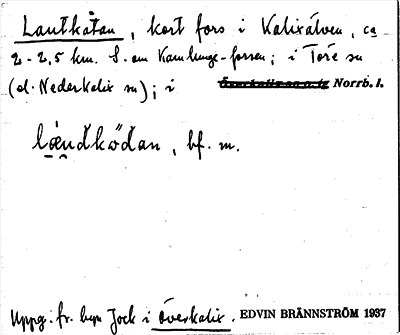 Lautkåtan, kort fors i Kalixälven, ca
2-2,5 km. S. om Kamlunge-forsen; i Töre sn
(el. Nederkalix sn); i Överkalix sn o. tg Norrb. l.
lændködan, bf. m.
Uppg. fr. byn Jock i Överkalix. EDVIN BRÄNNSTRÖM 1937